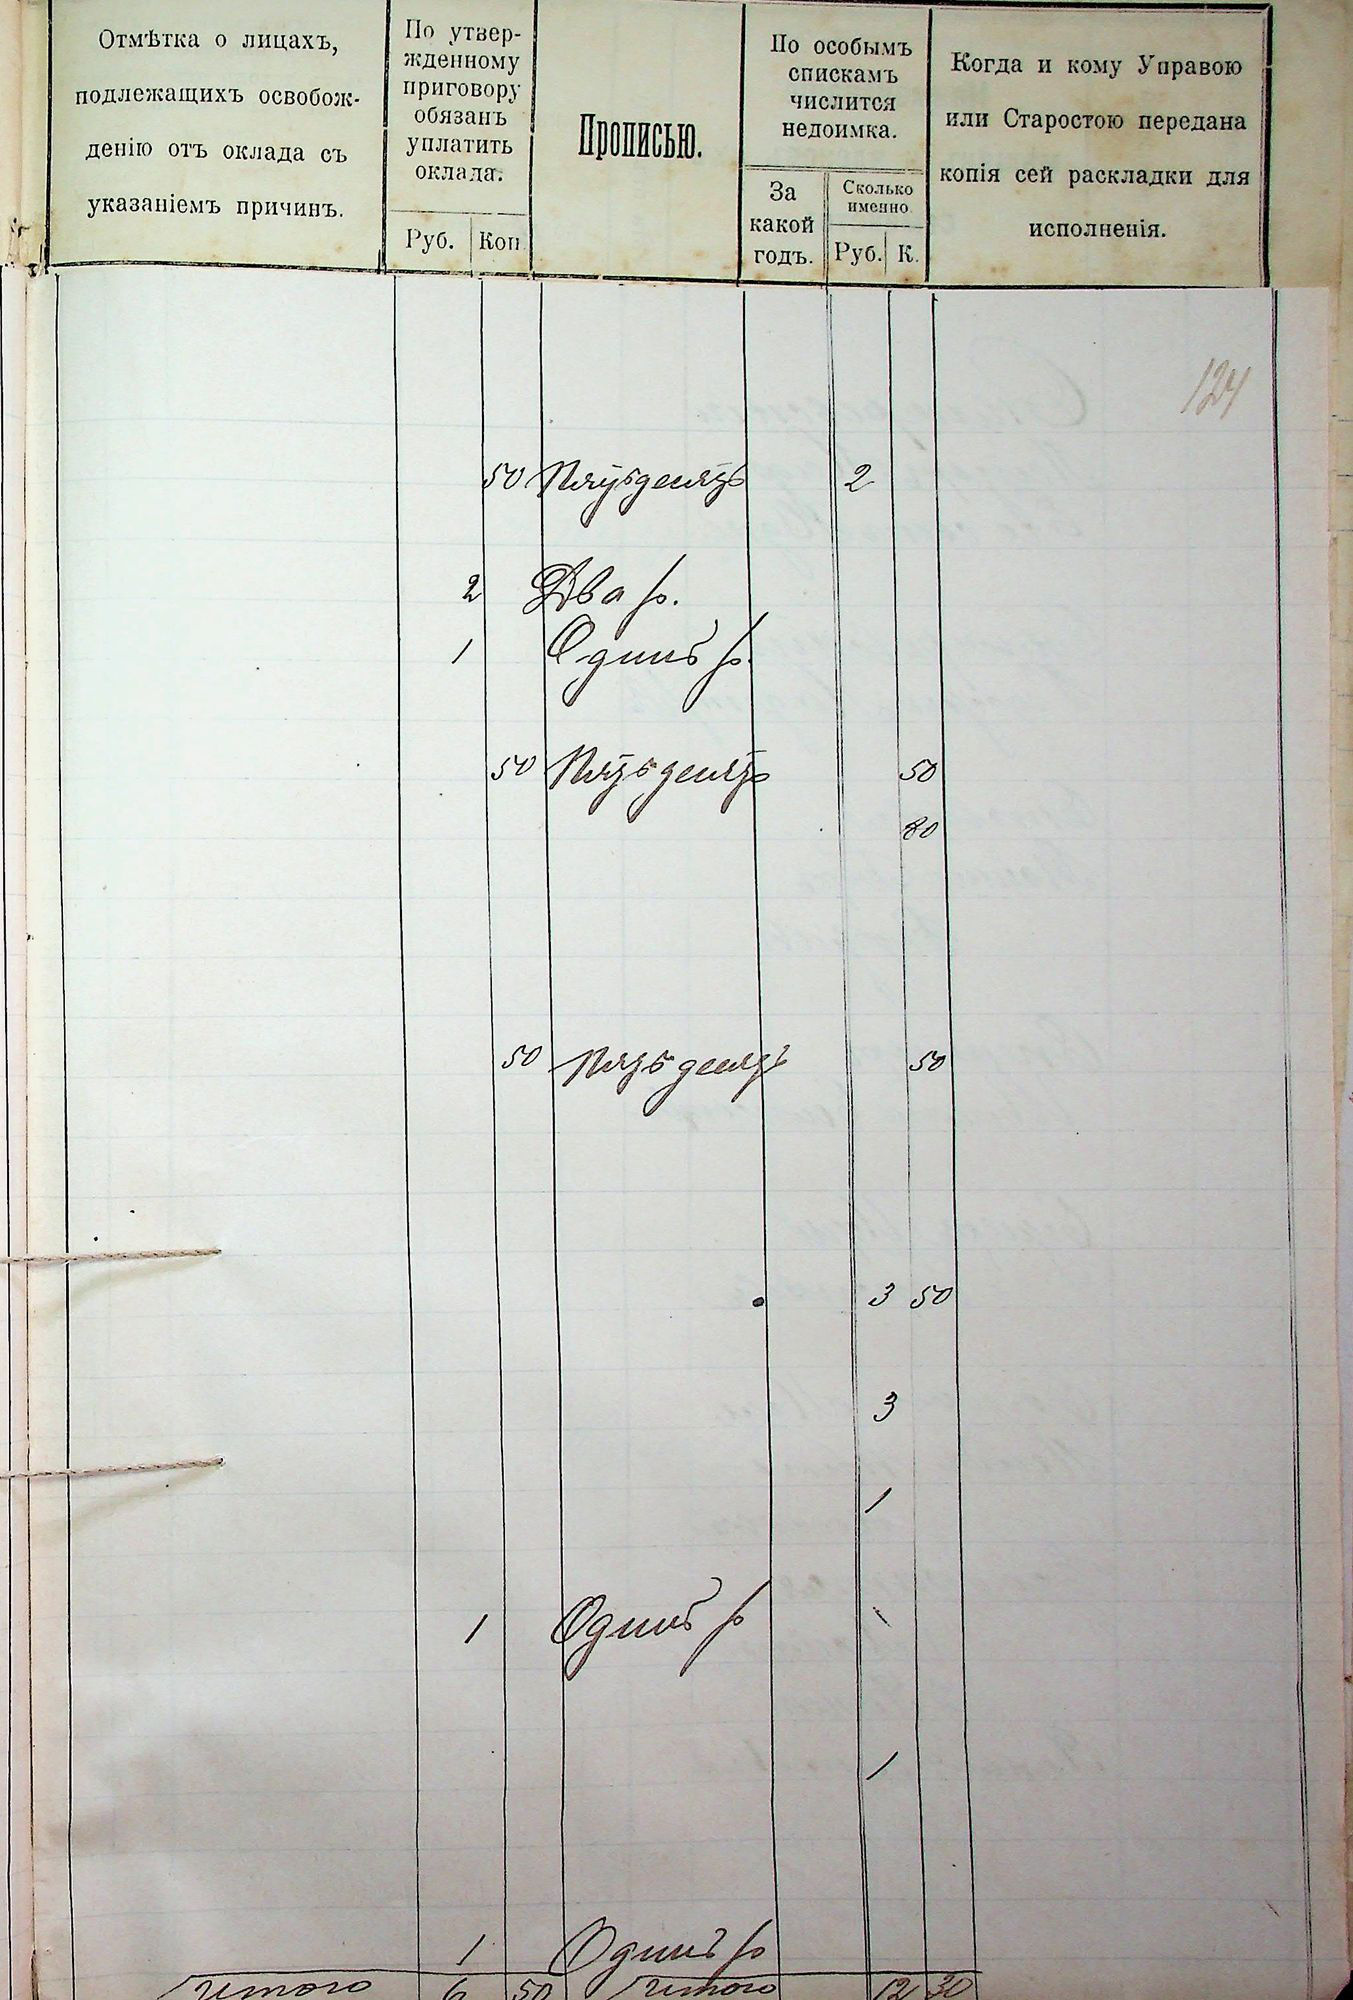 Отмѣтка о лицахъ,
подлежащихъ освобож-
денію отъ оклада съ
указаніемъ причинъ.
По утвер-
жденному
приговору
обязанъ
уплатить
оклада.
Руб. Коп
Прописью.
По особымъ
спискамъ
числится
недоимка.
За
какой
годъ.
Сколько
именно
Руб. К.
Когда и кому Управою
или Старостою передана
копія сей раскладки для
исполненія.
124
50 Пятьдесятъ 2
2 Два р.
1 Одинъ р.
50 Пятьдесятъ 50
80
50 Пятьдесятъ 50
3 50
3
1
1 Одинъ р 1
1
1 Одинъ р
Итого 6 50 Итого 12 30